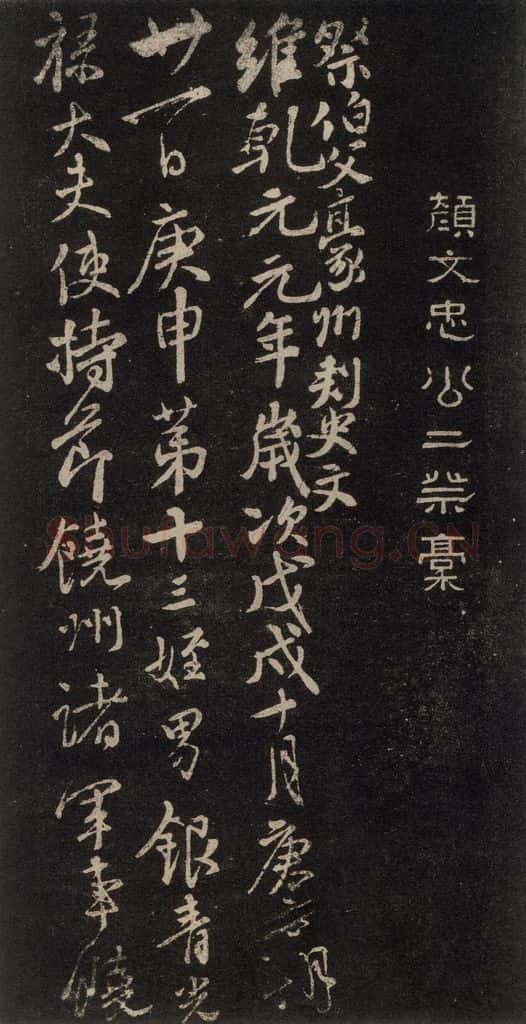 顏文忠公二祭稾
祭伯父豪州刺史文
維乾元元年歲次戊戌十月庚子朔
廿一日庚申第十三姪男銀青光
祿大夫使持節饒州諸軍事饒
Shufawang.CN